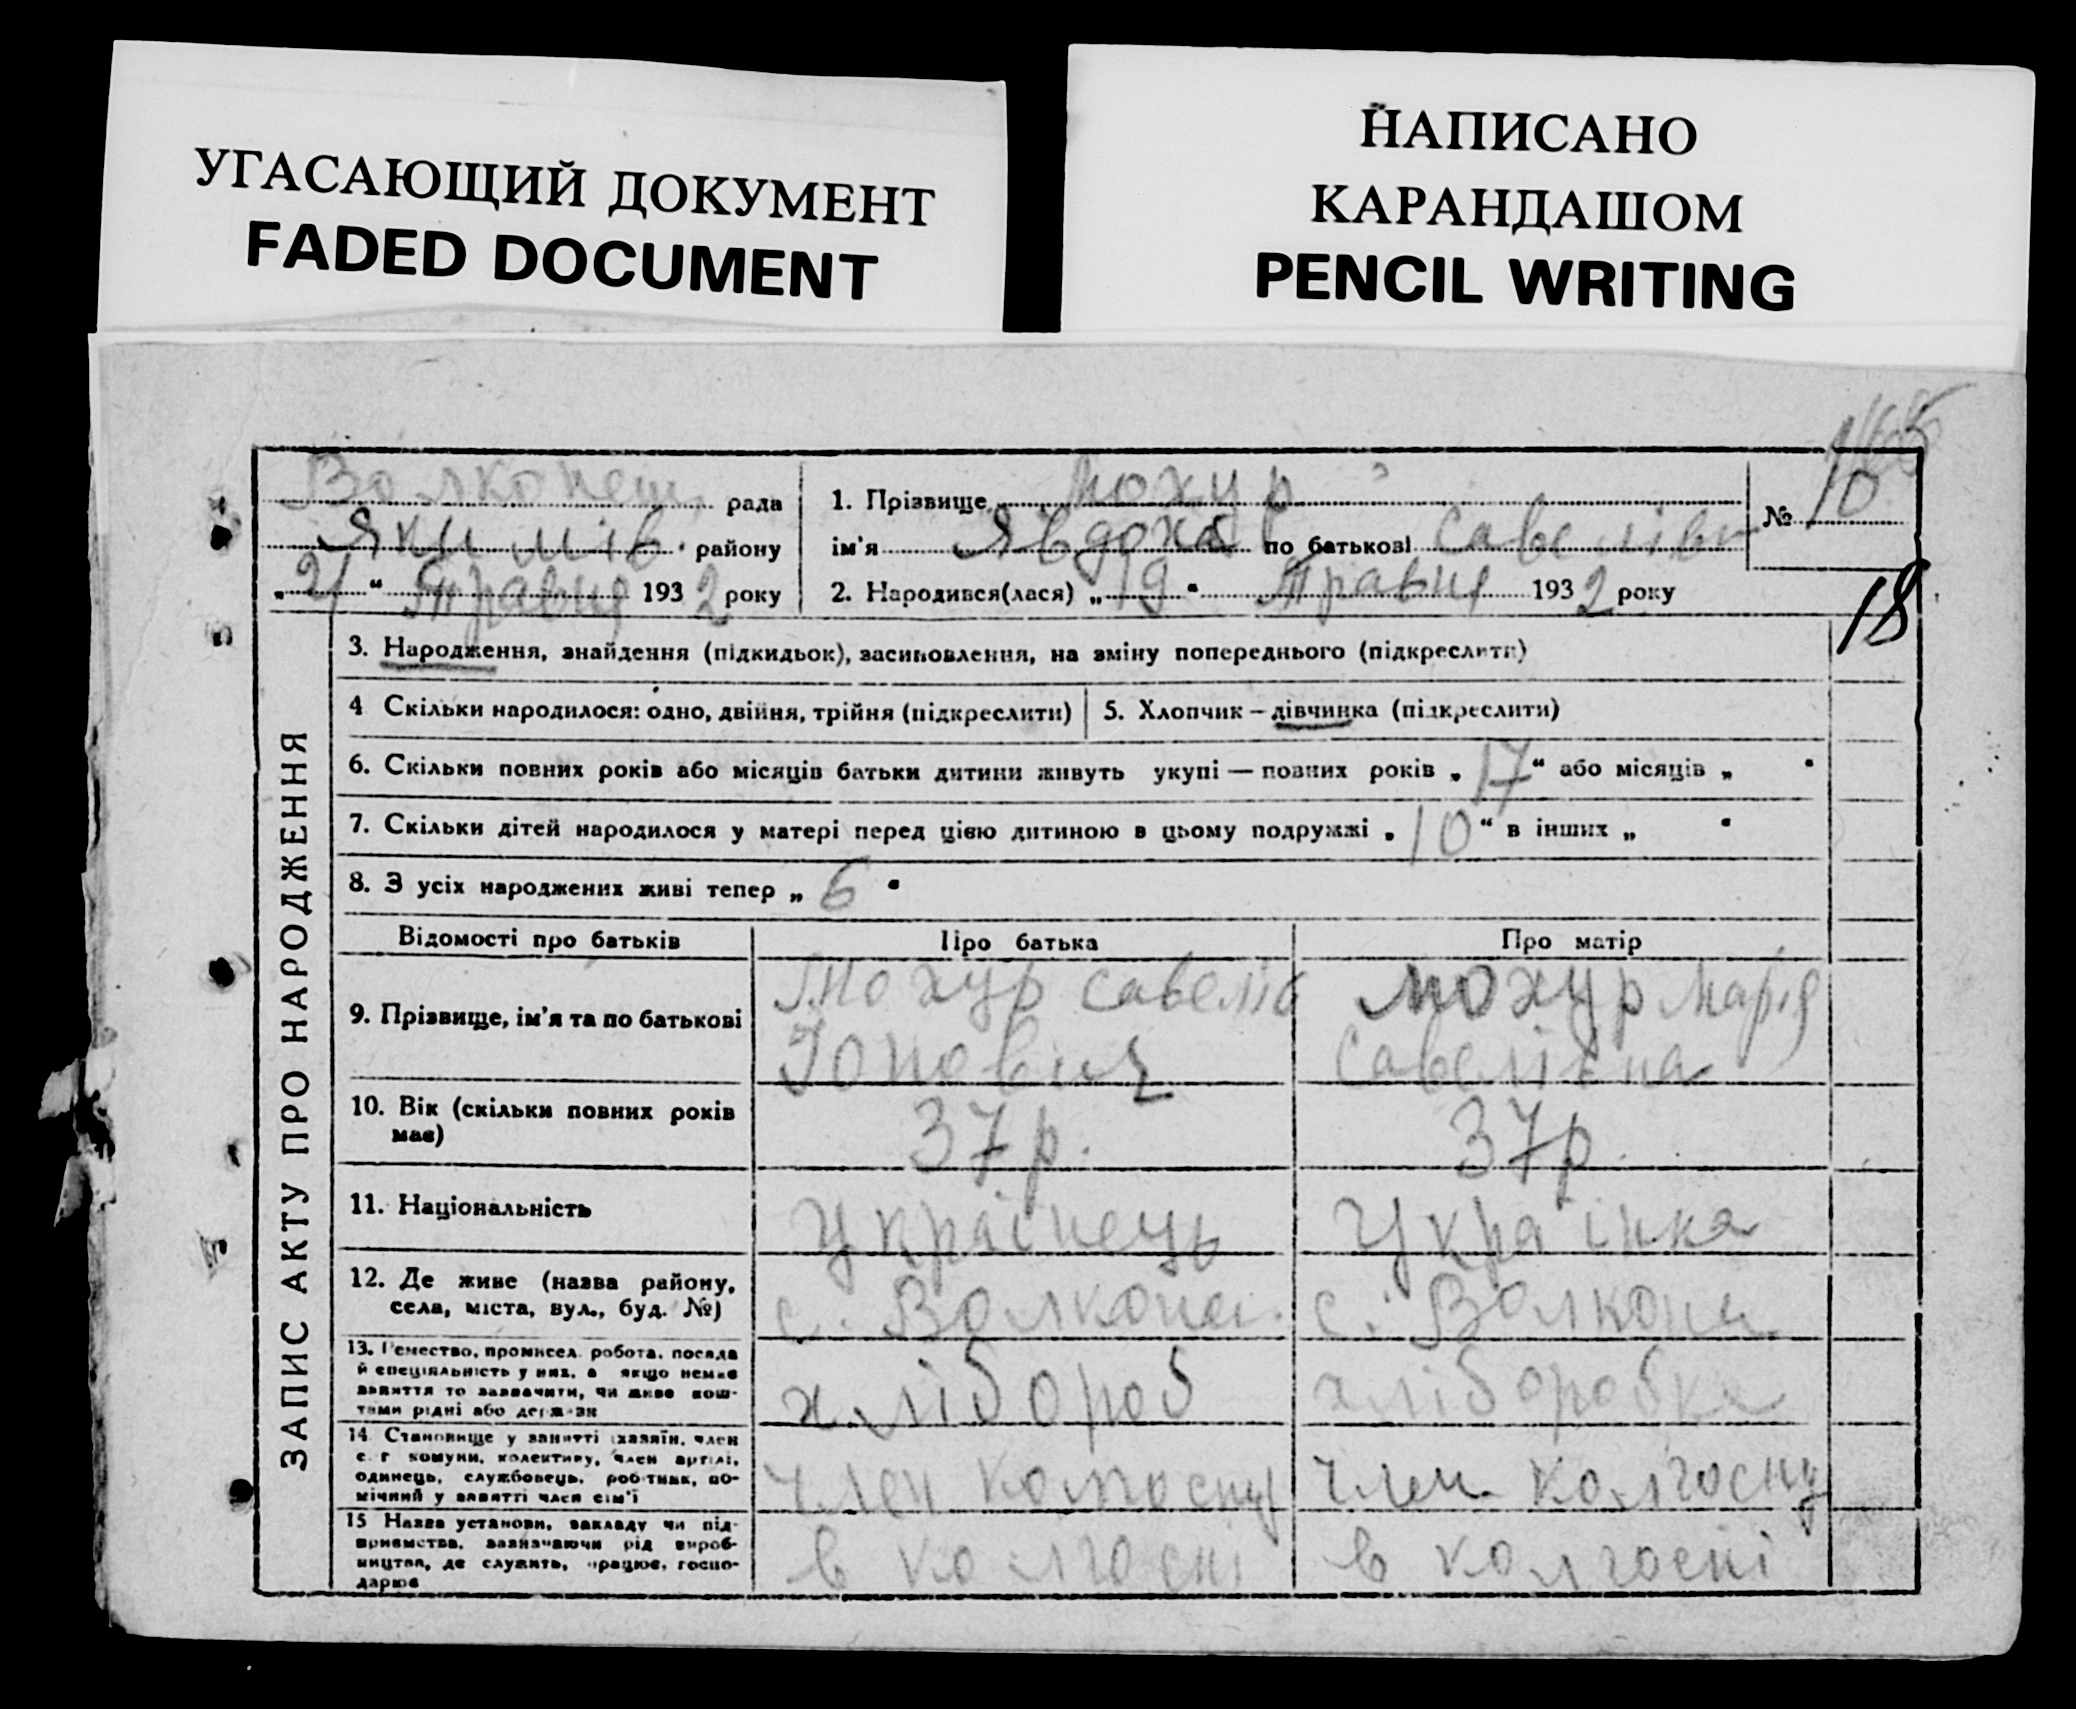 УГАСАЮЩИЙ ДОКУМЕНТ
FADED DOCUMENT
НАПИСАНО
КАРАНДАШОМ
PENCIL WRITING
Волконеш. рада
Якимів. району
„21“ Травня 1932 року
1. Прізвище Мохур
ім'я Явдоха по батькові Савелівн
2. Народився(лася) „19“ Травня 1932 року
№ 10
18
ЗАПИС АКТУ ПРО НАРОДЖЕННЯ
3. Народження, знайдення (підкидьок), засиновлення, на зміну попереднього (підкреслити)
4 Скільки народилося: одно, двійня, трійня (підкреслити)
5. Хлопчик – дівчинка (підкреслити)
6. Скільки повних років або місяців батьки дитини живуть укупі — повних років „17“ або місяців „ “
7. Скільки дітей народилося у матері перед цією дитиною в цьому подружжі „10“ в інших „ “
8. З усіх народжених живі тепер „6“
Відомості про батьків Про батька Про матір
9. Прізвище, ім'я та по батькові
Мохур Савелій
Іонович
Мохур Марія
Савеліївна
10. Вік (скільки повних років
має)
37 р. 37 р.
11. Національність Українець Українка
12. Де живе (назва району,
села, міста, вул., буд. №)
с. Волконеш. с. Волконеш
13. Ремество, промисел, робота, посада
й спеціяльність у них, а якщо немає
заняття то зазначити, чи живе кош-
тами рідні або держави
хлібороб хліборобка
14 Становище у занятті (хазяїн, член
с. г комуни, колективу, член артілі,
одинець, службовець, робітник, по-
мічний у занятті член сім'ї
член колгоспу член колгоспу
15 Назва установи, закладу чи під-
приємства, зазначаючи рід вироб-
ництва, де служить, працює, госпо-
дарює
в колгоспі в колгоспі